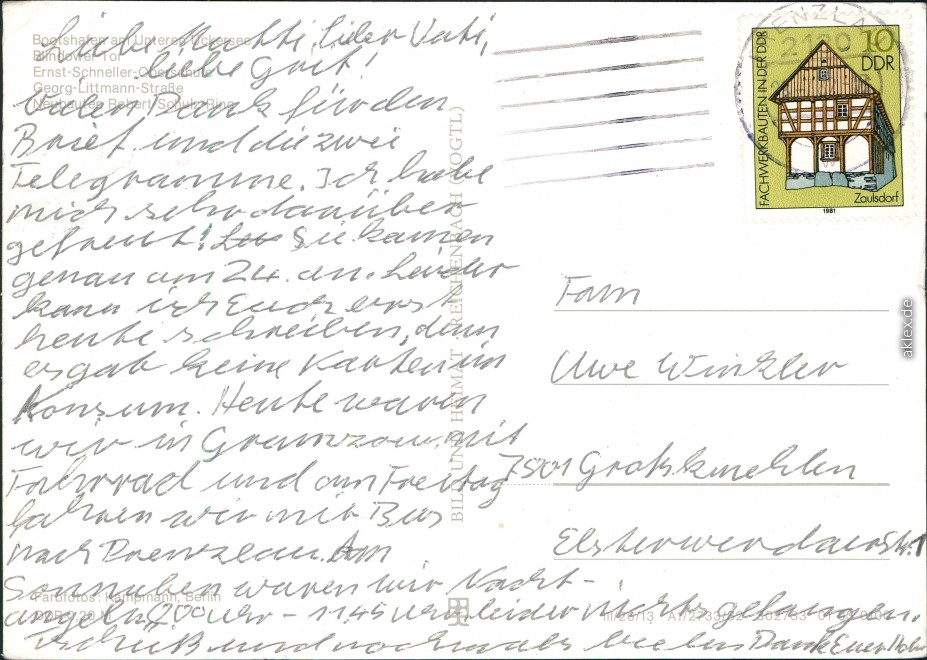 Liebe Mutti, lieber Vati,
liebe Grit!
Vielen Dank für den
Brief und die zwei
Telegramme. Ich habe
mich sehr darüber
gefreut! Sie kamen
genau am 24. an. Leider
kann ich Euch erst
heute schreiben, denn
es gab keine Karten im
Konsum. Heute waren
wir in Gramzow mit
Fahrrad und am Freitag
fahren wir mit Bus
nach Prenzlau. Am
Sonnaben waren wir Nacht-
angeln 700 Uhr - 1145 Uhr leider nichts gefangen.
Tschüß und nochmals vielen Dank Euer
Bootshafen am Unteren Uckersee
Blindower Tor
Ernst-Schneller-Oberschule
Georg-Littmann-Straße
Neubauten Robert-Schulz-Ring
Farbfotos: Kampmann, Berlin
BILD UND HEIMAT REICHENBACH (VOGTL)
III/26/13 A1/2733/82
PRENZLAU
2130
10
DDR
FACHWERKBAUTEN IN DER DDR
Zaulsdorf
1981
Fam
Uwe Winzler
7801 Großkmehlen
Elsterwerdaer Str. 1
aklex.de